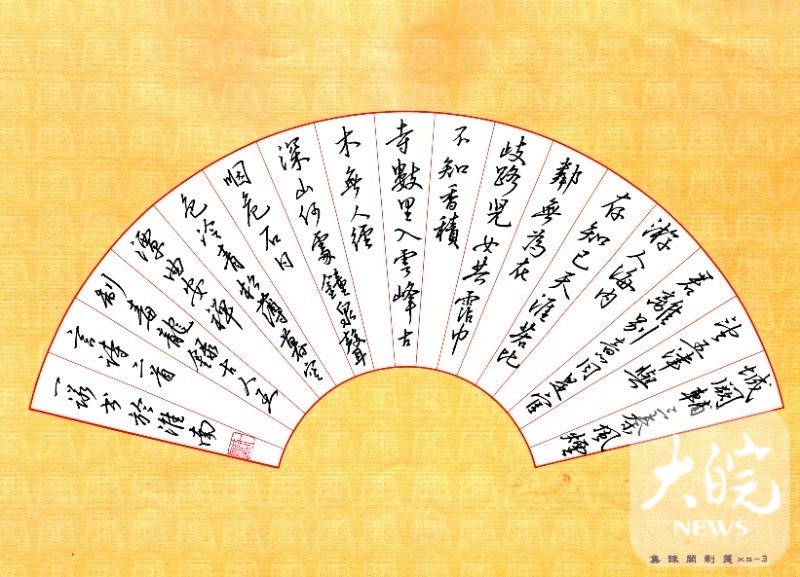 城闕輔三秦風煙
望五津與
君離別意同是宦
游人海内
存知己天涯若比
鄰無為在
歧路兒女共霑巾
不知香積
寺數里入雲峰古
木無人徑
深山何處鐘泉聲
咽危石日
色冷青松薄暮空
潭曲安禪
制毒龍錄古人五
言詩二首
一諾書於淮南
大皖
NEWS
閣制箋 xs-3